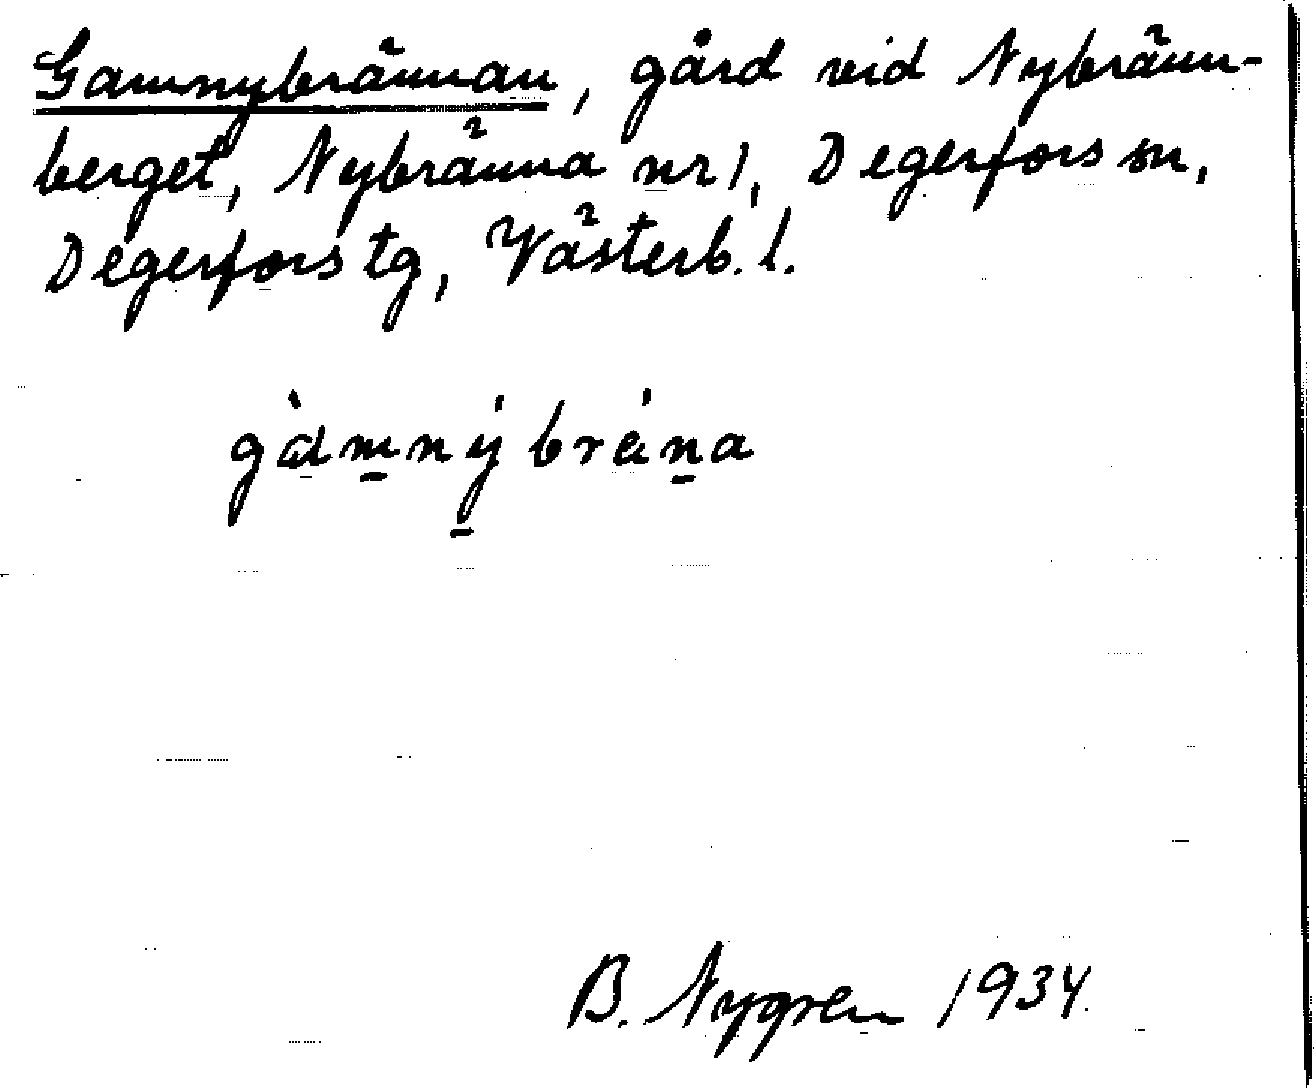 Gammybrännan, gård vid Nybränn-
berget, Nybränna nr 1, Degerfors sn,
Degerfors tg, Västerb. l.
gàmnýbréna
B. Nygren 1934